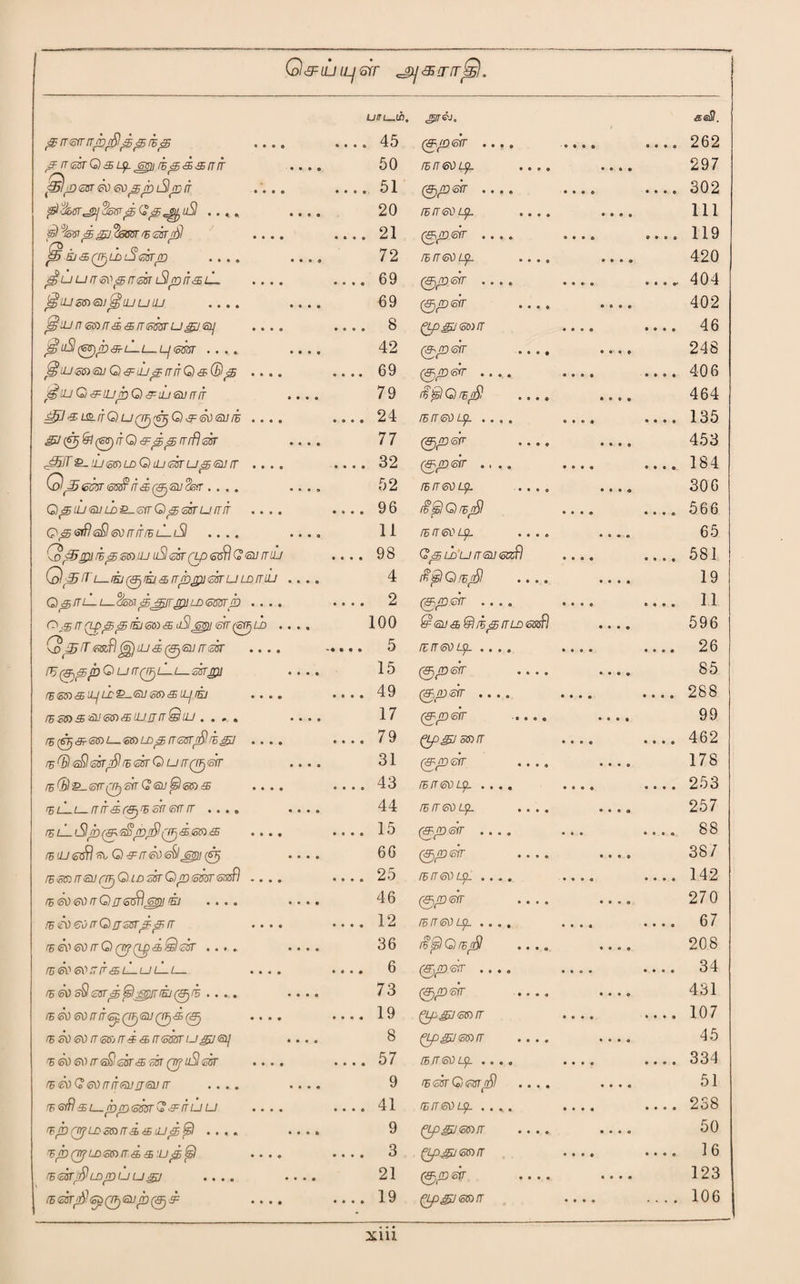 செய்யுள் அகராதி.
பாட்டு. நூல். கவி.
தாளாற்றித்தந்த .... .... 45 குறள் .... .... .... 262
தான்கெடினுந்தக்கார் .... 50 நாலடி .... .... 297
திறனல்லதற்பிறர் .... .... 51 குறள் .... .... .... 302
தினைஅனைத்தேஆயி .... .... 20 நாலடி .... .... 111
தினைத்துணைநன்றி .... .... 21 குறள் .... .... .... 119
தீங்கரும்பீன்ற .... .... 72 நாலடி .... .... 420
தீப்பாலதான்பிறர்கட் .... 69 குறள் .... .... .... 404
தீயவைதீயப்பய .... .... 69 குறள் .... .... 402
தீயாரைக்காண்பதுவு .... 8 மூதுரை .... .... 46
தீயினாற்சுட்டபுண் .... .... 42 குறள் .... .... 248
தீயவைசெய்தார்கெடுத .... .... 69 குறள் .... .... .... 406
தீயசெயற்செய்வார் .... 79 நீதிநெறி .... .... 464
துகடீர்பெருஞ்செல்வந .... .... 24 நாலடி .... .... .... 135
துஞ்சினார்செத்தாரின் .... 77 குறள் .... .... 453
தூஉய்மையென்பதவா .... .... 32 குறள் .... .... .... 184
தென்கணார்க்குவளை .... .... 52 நாலடி .... .... 306
தெய்வமுளதென்பார் .... .... 96 நீதிநெறி .... .... 566
தெளிவிலார்நட்பி .... .... 11 நாலடி .... .... 65
தேற்றந்தையமின்முனிவோய் .... 98 தேம்பாவணி .... .... 581
தொடங்குங்காற்றுன்பமாய் .... 4 நீதிநெறி .... .... 19
தொட்டனைத்தூறுமணற் .... .... 2 குறள் .... .... 11
தொழுதநங்கைமினுள்ளும் .... 100 சீவகசிந்தாமணி .... 596
தோணியியக்குவான் .... .... 5 நாலடி .... .... .... 26
நகுதற்பொருட்டன்று .... 15 குறள் .... .... 85
நகையுமுவகையுங் .... .... 49 குறள் .... .... .... 288
நகைவகையராகிய .... .... 17 குறள் .... .... 99
நஞ்சுடைமைதானறிந்து .... .... 79 மூதுரை .... .... 462
நடுவின்றிநன்பொருள் .... 31 குறள் .... .... 178
நடுவூருள்வேதிகை .... .... 43 நாலடி .... .... .... 253
நட்டார்க்குநள்ளா .... .... 44 நாலடி .... .... 257
நட்பிற்குவீற்றிருக்கை .... .... 15 குறள் .... .... .... 88
நயனிலசொல்லினுஞ் .... 66 குறள் .... .... 387
நரைவருமென்றெண்ணி .... .... 25 நாலடி .... .... .... 142
நல்லாரெனினுங் .... .... 46 குறள் .... .... 270
நல்லாரெனத்தா .... .... 12 நாலடி .... .... .... 67
நல்லாறெனினுங்கொளல் .... .... 36 நீதிநெறி .... .... 208
நல்லார்கட்பட்ட .... .... 6 குறள் .... .... .... 34
நலனினுந்திறங்குந .... .... 73 குறள் .... .... 431
நல்லார்ஒருவருக்கு .... .... 19 மூதுரை .... .... 107
நல்லாரைக்காண்பதுவு .... 8 மூதுரை .... .... 45
நல்லாவின்கன்றாயின் .... .... 57 நாலடி .... .... .... 334
நல்லேலார்வரவா .... .... 9 நன்னெறி .... .... 51
நளிகடற்றண்சேர்ப்ப .... .... 41 நாலடி .... .... .... 238
நற்றாமரைக்கயத்தி .... .... 9 மூதுரை .... .... 50
நற்றாமரைக்கயத்தி .... .... 3 மூதுரை .... .... 16
நன்றிமறப்பது .... .... 21 குறள் .... .... 123
நன்றிஒருவற்குச் .... .... 19 மூதுரை .... .... 106
xiii